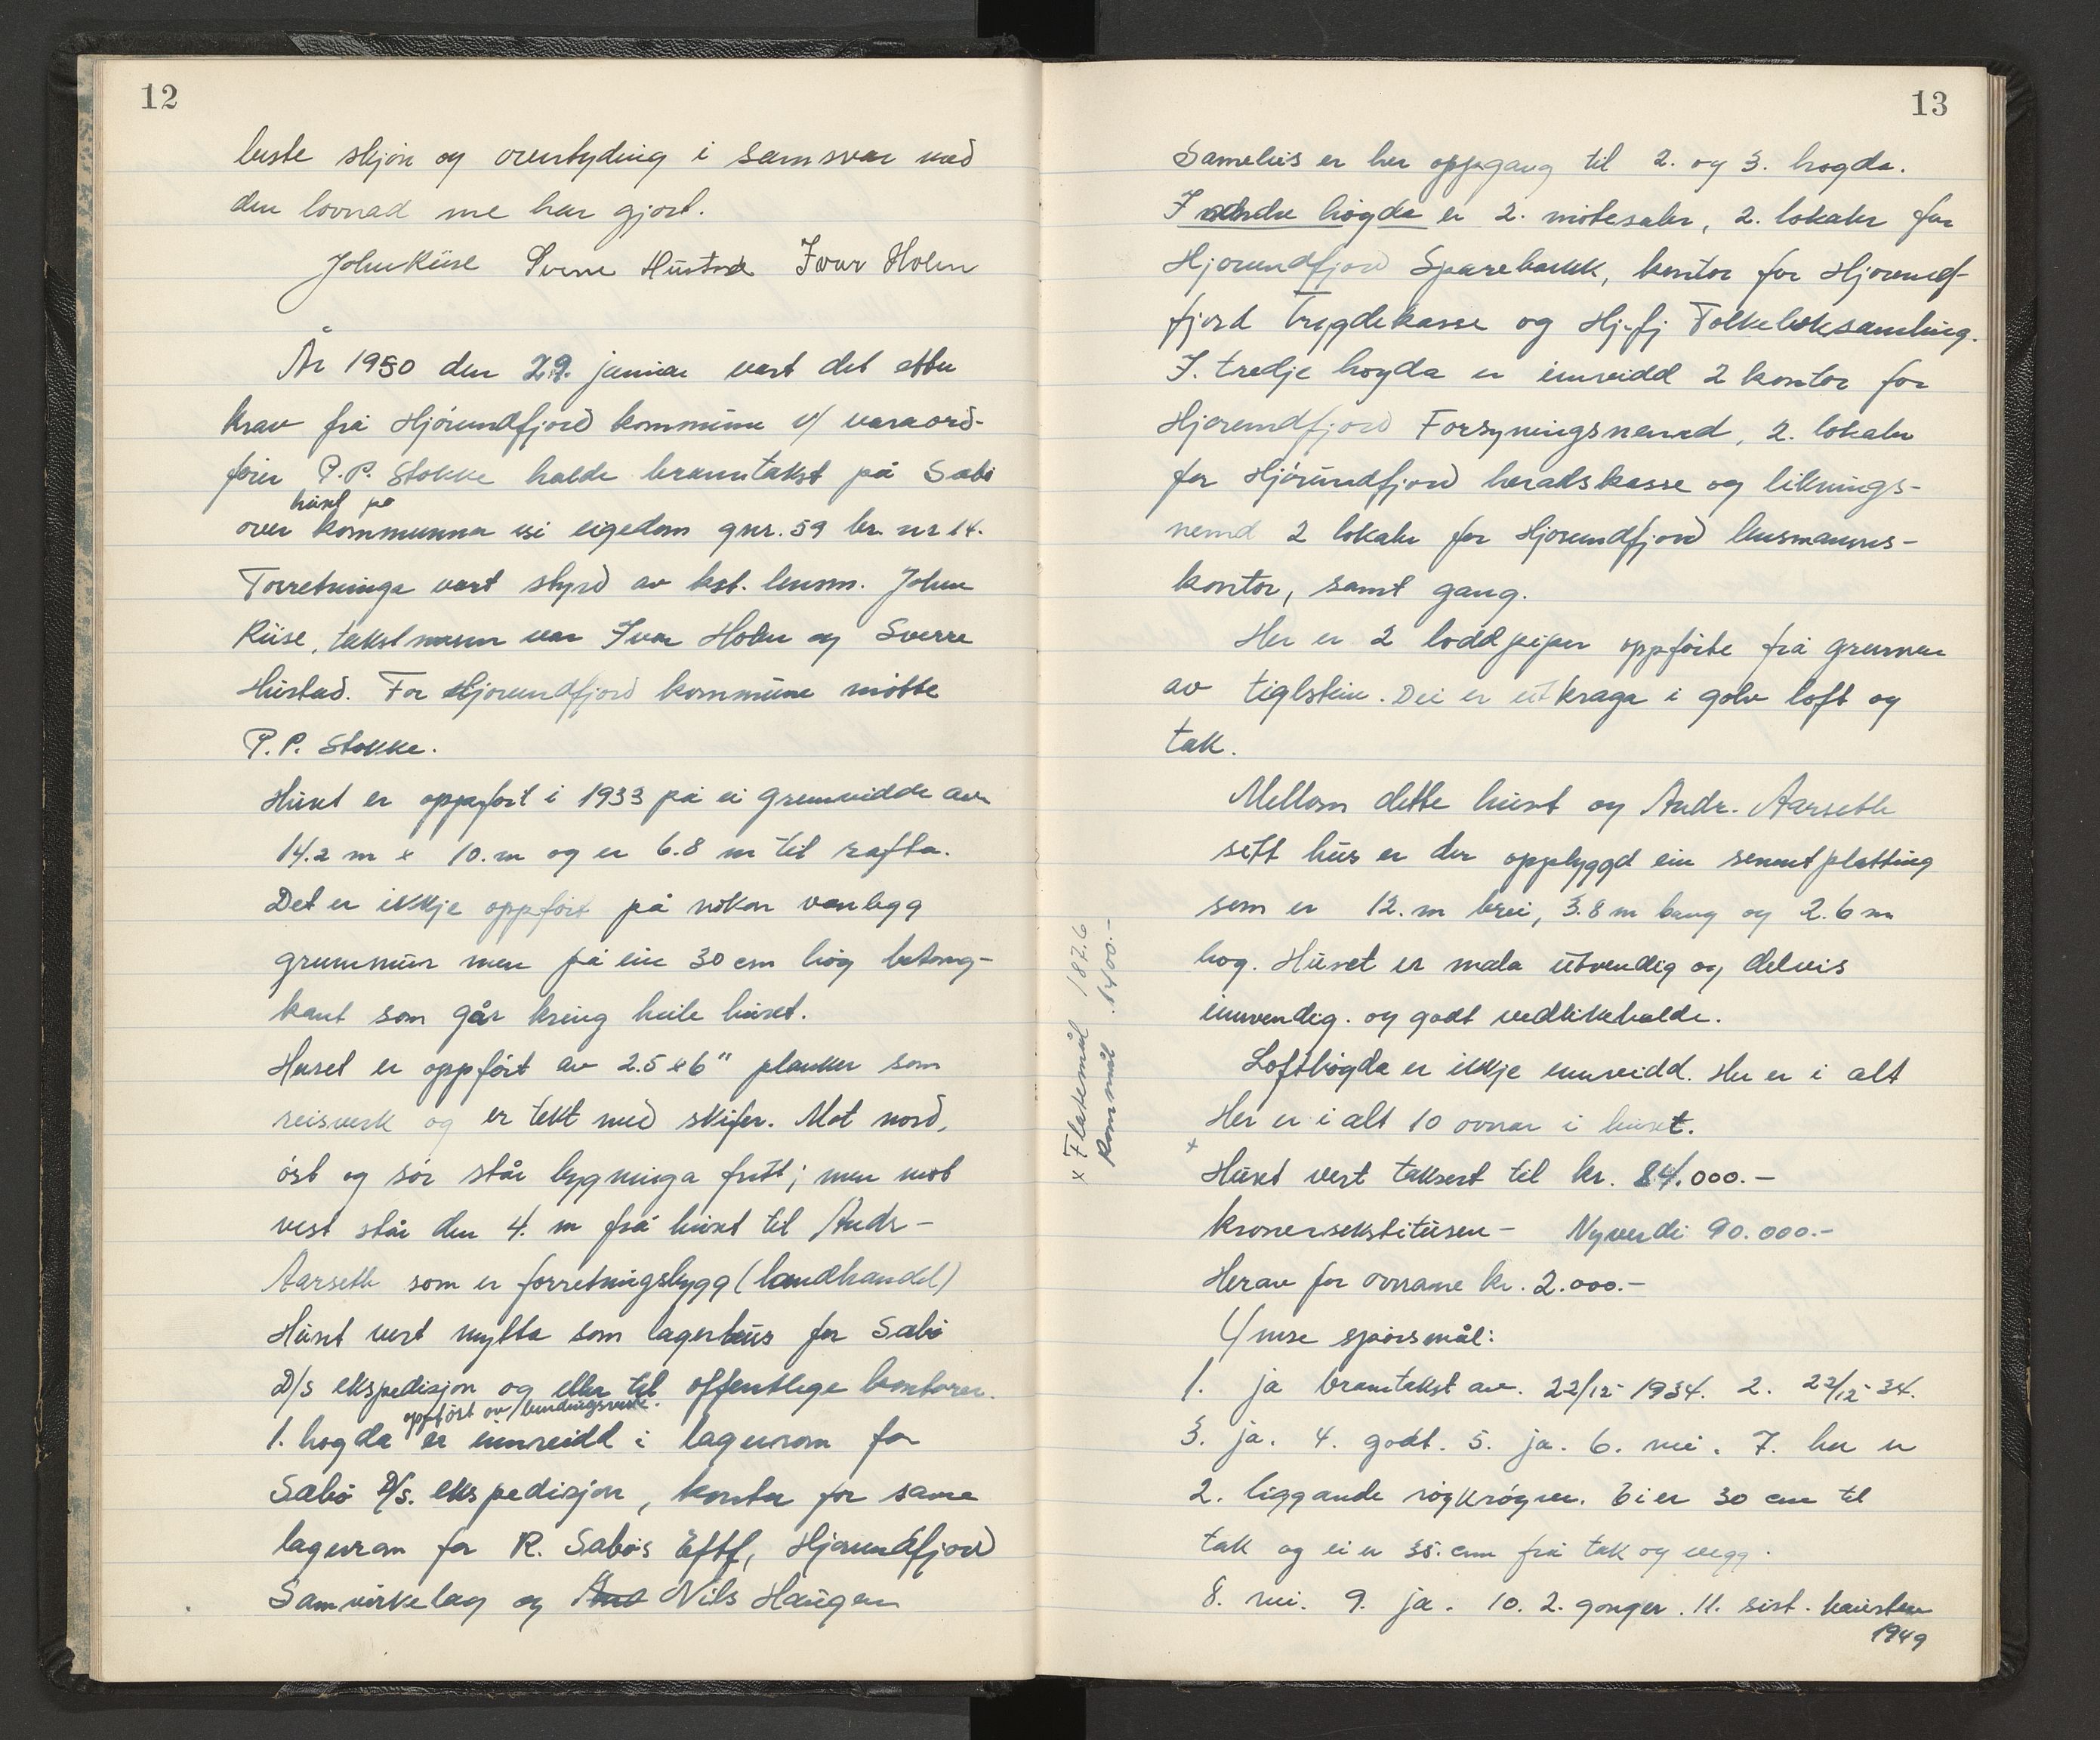 12
beste skjøn og overtyding i samsvar med
den lovnad me har gjort.
John Riise Sverre Hustad Ivar Holen
År 1950 den 29. januar vart det etter
krav frå Hjørundfjord kommune v/ varaord-
førar P.P. Stokke halde branntakst på Sæbø
huset på
over kommunna si eigedom gnr. 59 br. nr 14.
Forretninga vart styrd av kst. lensm. John
Riise, takstmenn var Ivar Holen og Sverre
Hustad. For Hjørundfjord kommune møtte
P.P. Stokke.
Huset er oppført i 1933 på ei grunnvidde av
14.2 m x 10. m og er 6.8 m til rafta.
Det er ikkje oppført på nokon vanlegg
grunnmur men på ein 30 cm høg betong-
kant som går kring heile huset.
Huset er oppført av 2.5 x 6" planker som
reisverk og er tekt med skifer. Mot nord,
øst og sør står bygninga fritt; men mot
vest står den 4. m frå huset til Andr-
Aarseth som er forretningsbygg (landhandel)
Huset vert nytta som lagerhus for Sæbø
D/S ekspedisjon og eller til offentlege kontorer.
oppført av bindingsverk.
1. høgda er innreidd i lagerrom for
Sæbø D/S. ekspedisjon, kontor for same
lagerrom for R. Sæbøs Eftf, Hjørundfjord
Samvirkelag og And Nils Haugen
13
Sameleis er her oppgang til 2. og 3. høgda.
I andre høgda er 2. møtesaler, 2. lokaler for
Hjørundfjord Sparebank, kontor for Hjørund-
fjord Trygdekasse og Hj.fj Folkeboksamling.
I. tredje høgda er innreidd 2 kontor for
Hjørundfjord Forsyningsnemnd, 2. lokaler
for Hjørundfjord heradskasse og liknings-
nemd 2 lokaler for Hjørundfjord lensmanns-
kontor, samt gang.
Her er 2 loddpiper oppførte frå grunnen
av tiglstein. Dei er utkraga i golv loft og
tak.
Mellom dette huset og Andr. Aarseth
sitt hus er der oppbyggd ein sementplatting
som er 12. m brei, 3.8 m lang og 2.6 m
høg. Huset er mala utvendig og delvis
innvendig. og godt vedlikehalde.
Lofthøgda er ikkje innreidd. Her er i alt
Her er i alt 10 ovnar i huset.
x
Huset vert taksert til kr. 84.000.-
Kronersekstitusen- Nyverdi 90.000.-
Herav for ovnane kr. 2.000.-
Ymse spørsmål:
1. ja branntakst av. 22/12- 1934. 2. 22/12- 34.
3. ja. 4. godt. 5. ja. 6. nei. 7. her er
2. liggande røykrøyrer. Ei er 30 cm til
tak og ei er 35. cm frå tak og vegg.
8. nei. 9. ja. 10. 2. gonger. 11. sist. hausten
1949
x Flatemål 187.6
Rommål 1400.-